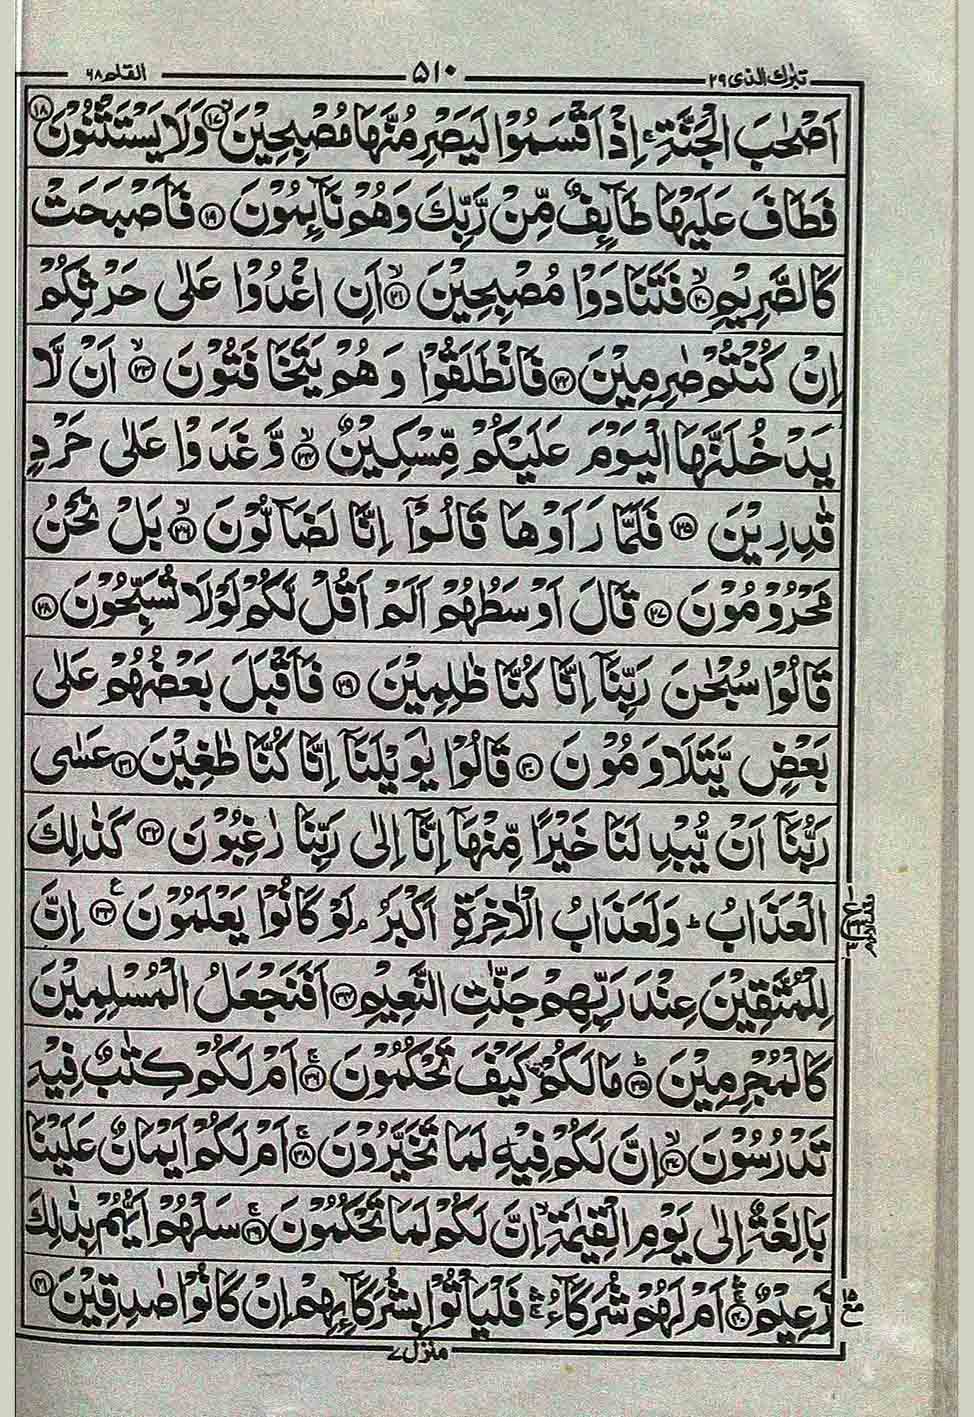 تبٰرك الذی ۲۹ ۵۱۰ القلم ۶۸
اَصْحٰبَ الْجَنَّةِ ۚ اِذْ اَقْسَمُوْا لَيَصْرِمُنَّهَا مُصْبِحِيْنَ ۙ۱۷ وَلَا يَسْتَثْنُوْنَ ۱۸
فَطَافَ عَلَيْهَا طَآئِفٌ مِّنْ رَّبِّكَ وَهُمْ نَآئِمُوْنَ ۱۹ فَاَصْبَحَتْ
كَالصَّرِيْمِ ۙ۲۰ فَتَنَادَوْا مُصْبِحِيْنَ ۙ۲۱ اَنِ اغْدُوْا عَلٰى حَرْثِكُمْ
اِنْ كُنْتُمْ صٰرِمِيْنَ ۲۲ فَانْطَلَقُوْا وَهُمْ يَتَخَافَتُوْنَ ۙ۲۳ اَنْ لَّا
يَدْخُلَنَّهَا الْيَوْمَ عَلَيْكُمْ مِّسْكِيْنٌ ۙ۲۴ وَّغَدَوْا عَلٰى حَرْدٍ
قٰدِرِيْنَ ۲۵ فَلَمَّا رَاَوْهَا قَالُوْٓا اِنَّا لَضَآلُّوْنَ ۙ۲۶ بَلْ نَحْنُ
مَحْرُوْمُوْنَ ۲۷ قَالَ اَوْسَطُهُمْ اَلَمْ اَقُلْ لَّكُمْ لَوْلَا تُسَبِّحُوْنَ ۲۸
قَالُوْا سُبْحٰنَ رَبِّنَآ اِنَّا كُنَّا ظٰلِمِيْنَ ۲۹ فَاَقْبَلَ بَعْضُهُمْ عَلٰى
بَعْضٍ يَّتَلَاوَمُوْنَ ۳۰ قَالُوْا يٰوَيْلَنَآ اِنَّا كُنَّا طٰغِيْنَ ۳۱ عَسٰى
رَبُّنَآ اَنْ يُّبْدِلَنَا خَيْرًا مِّنْهَآ اِنَّآ اِلٰى رَبِّنَا رٰغِبُوْنَ ۳۲ كَذٰلِكَ
الْعَذَابُ ؕ وَلَعَذَابُ الْاٰخِرَةِ اَكْبَرُ ۘ لَوْ كَانُوْا يَعْلَمُوْنَ ۳۳ ع اِنَّ
لِلْمُتَّقِيْنَ عِنْدَ رَبِّهِمْ جَنّٰتِ النَّعِيْمِ ۳۴ اَفَنَجْعَلُ الْمُسْلِمِيْنَ
كَالْمُجْرِمِيْنَ ؕ۳۵ مَا لَكُمْ كَيْفَ تَحْكُمُوْنَ ۚ۳۶ اَمْ لَكُمْ كِتٰبٌ فِيْهِ
تَدْرُسُوْنَ ۙ۳۷ اِنَّ لَكُمْ فِيْهِ لَمَا تَخَيَّرُوْنَ ۚ۳۸ اَمْ لَكُمْ اَيْمَانٌ عَلَيْنَا
بَالِغَةٌ اِلٰى يَوْمِ الْقِيٰمَةِ ۙ اِنَّ لَكُمْ لَمَا تَحْكُمُوْنَ ۚ۳۹ سَلْهُمْ اَيُّهُمْ بِذٰلِكَ
زَعِيْمٌ ۴۰ اَمْ لَهُمْ شُرَكَآءُ ۚ فَلْيَاْتُوْا بِشُرَكَآئِهِمْ اِنْ كَانُوْا صٰدِقِيْنَ ۴۱
منزل ۷